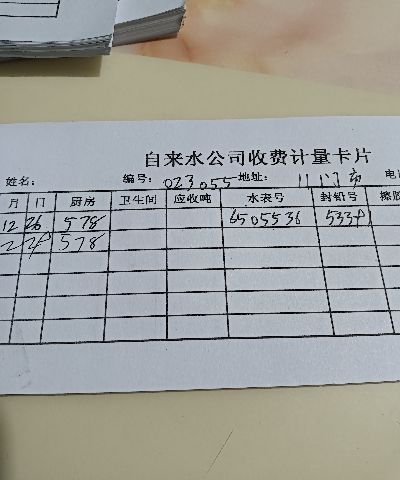 自来水公司收费计量卡片
姓名: 编号: 023055 地址: 11门市 电
月 日 厨房 卫生间 应收吨 水表号 封铅号
12 26 578 6505536
2 578